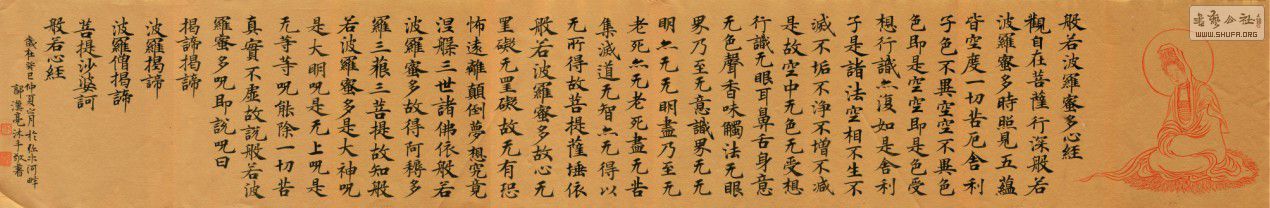 般若波羅蜜多心經
觀自在菩薩行深般若
波羅蜜多時照見五蘊
皆空度一切苦厄舍利
子色不異空空不異色
色即是空空即是色受
想行識亦復如是舍利
子是諸法空相不生不
滅不垢不淨不增不減
是故空中无色无受想
行識无眼耳鼻舌身意
无色聲香味觸法无眼
界乃至无意識界无无
明亦无无明盡乃至无
老死亦无老死盡无苦
集滅道无智亦无得以
无所得故菩提薩埵依
般若波羅蜜多故心无
罣礙无罣礙故无有恐
怖遠離顛倒夢想究竟
涅槃三世諸佛依般若
波羅蜜多故得阿耨多
羅三藐三菩提故知般
若波羅蜜多是大神呪
是大明呪是无上呪是
无等等呪能除一切苦
真實不虛故說般若波
羅蜜多呪即說呪曰
揭諦揭諦
波羅揭諦
波羅僧揭諦
菩提沙婆訶
般若心經
歲在癸巳仲夏六月於水河畔
漢亮沐手敬書
书艺公社
WWW.SHUFA.ORG